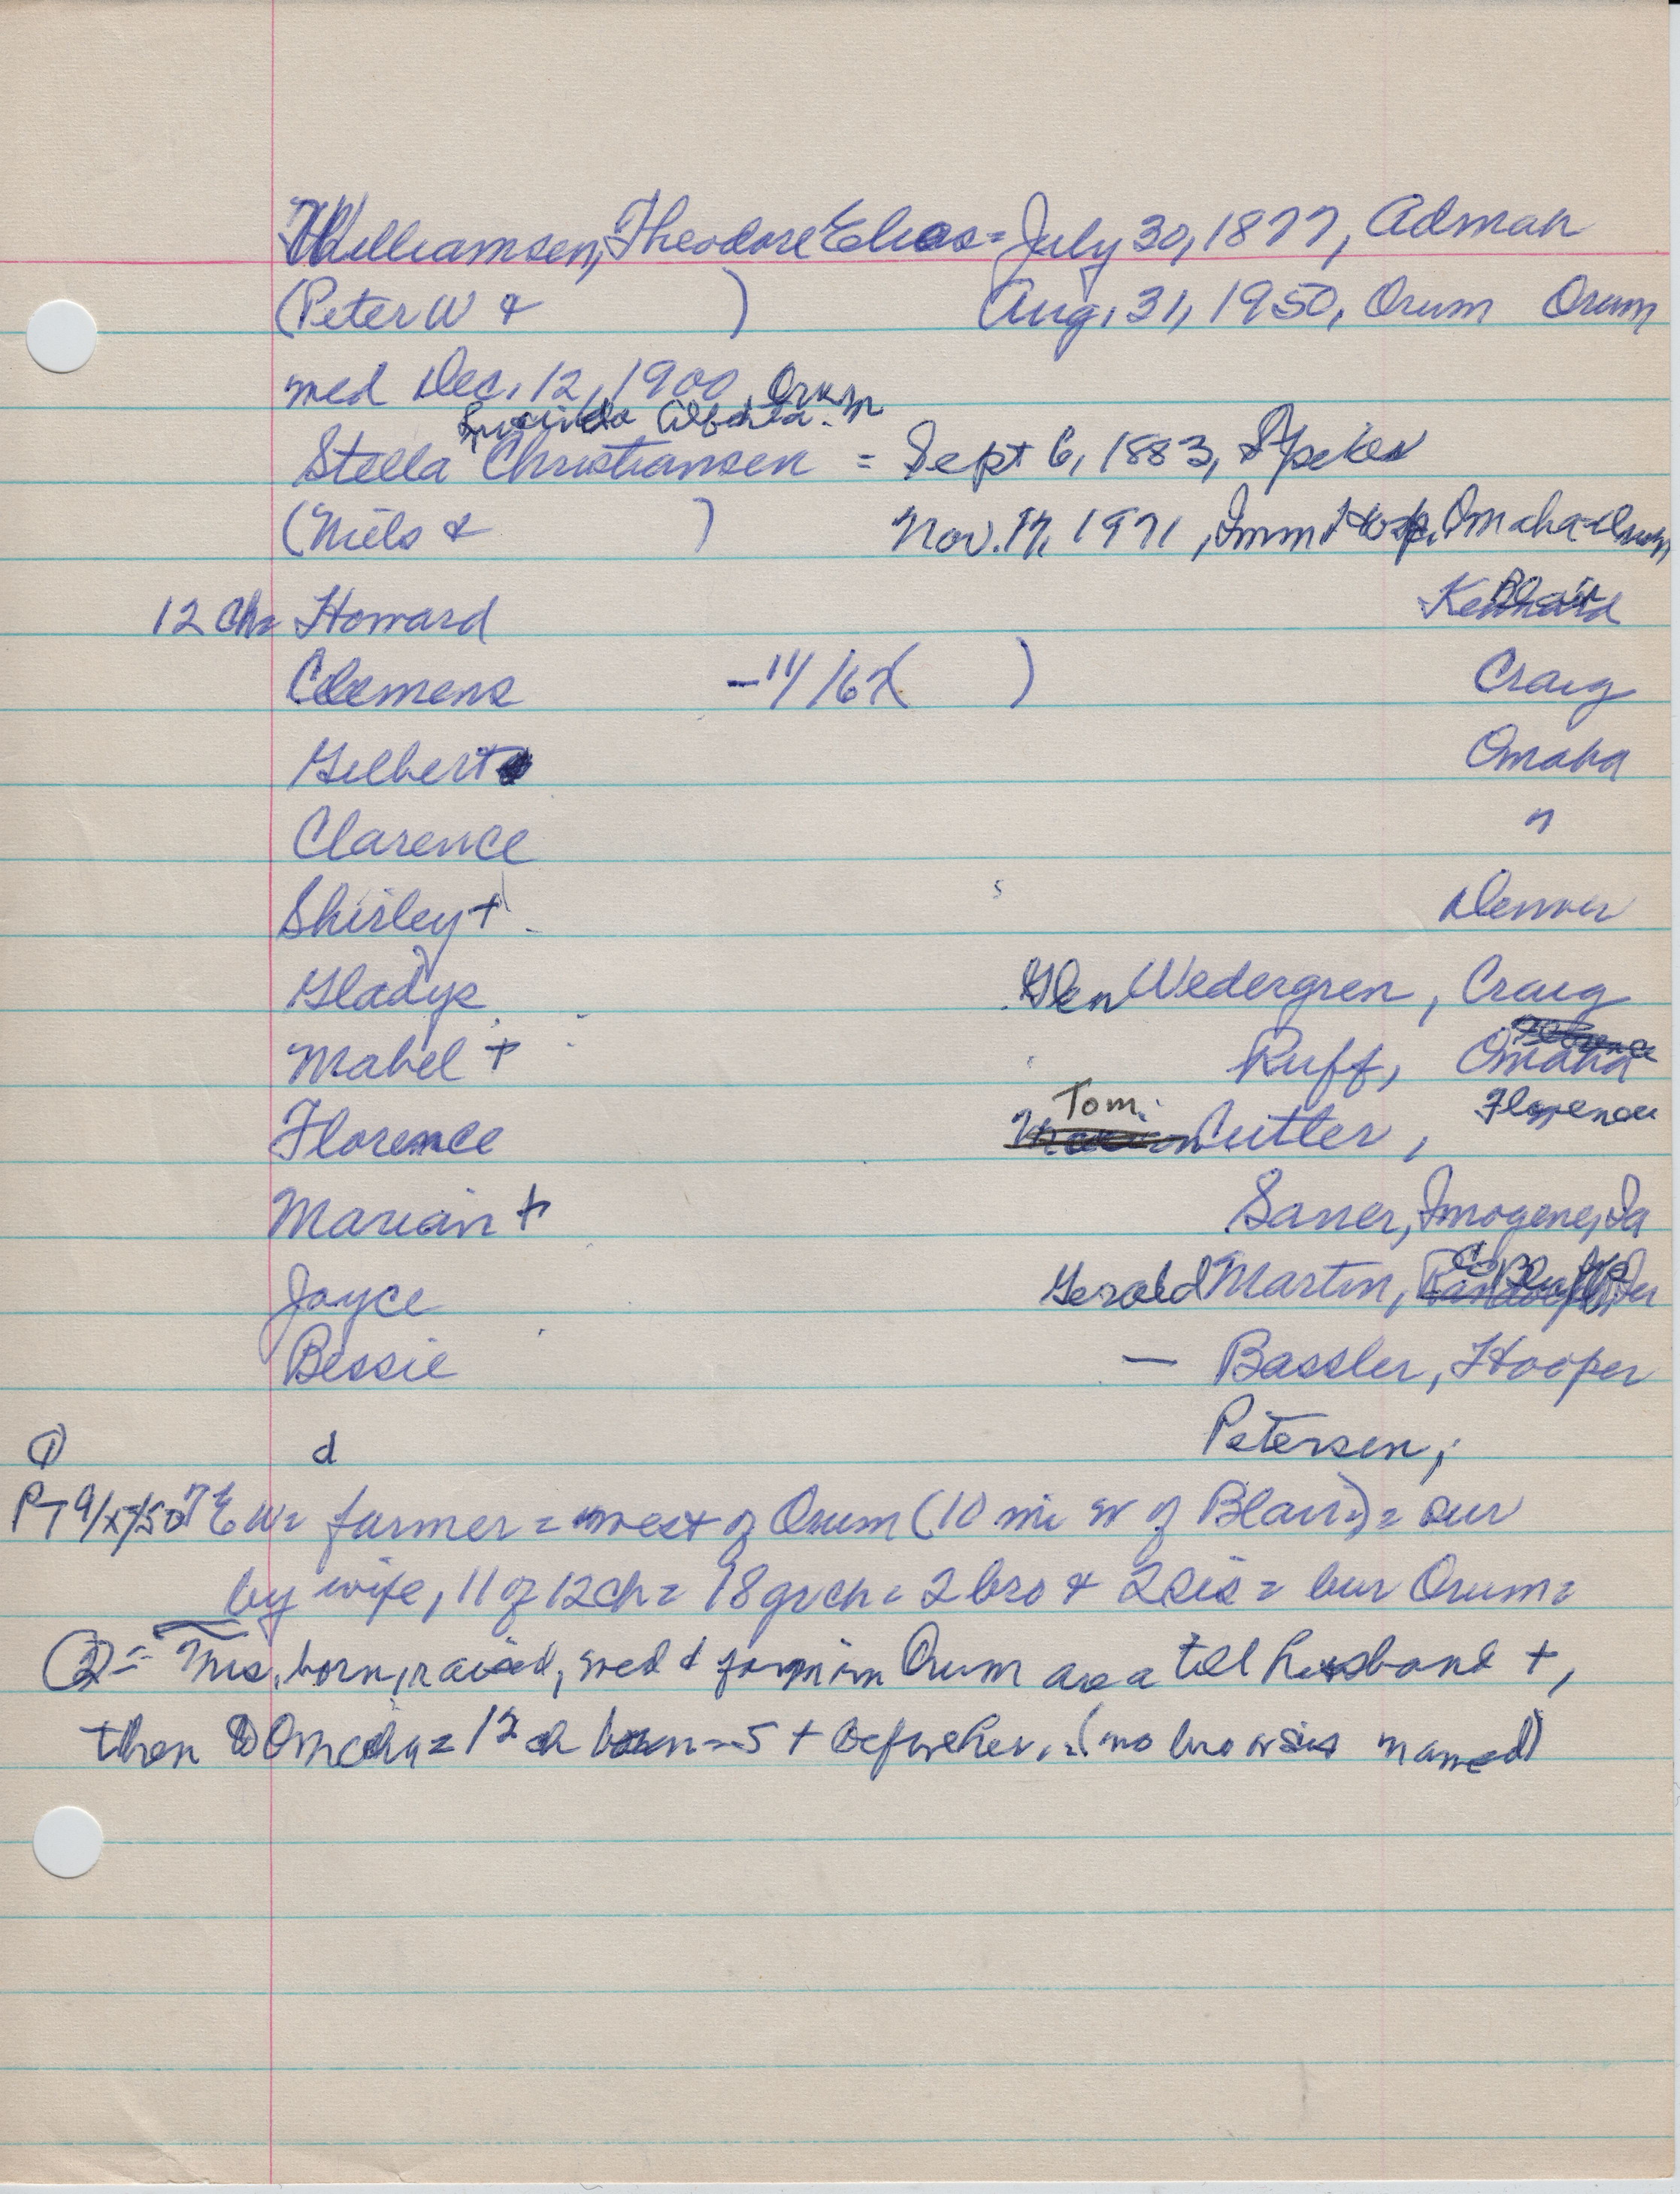 Williamsen, Theodore Elias = July 30, 1877, Admah
(Peter W & ) Aug. 31, 1950, Orum Orum
med Dec. 12, 1900, Orum
Lucinda Alberta
Stella Christiansen = Sept 6, 1883, Spiker
(Niels & ) Nov. 17, 1971, Imm Hosp. Omaha = Orum
12 Ch = Howard Kennard Blair
Clemens - 11/62 ( ) Craig
Gilbert Omaha
Clarence "
Shirley + Denver
Gladys Glen Wedergren, Craig
Mabel + Ruff, Omaha
Florence Tom Cutler, Florence
Marian + Saner, Imogene, Ia
Joyce Gerald Martin, C Bluffs, Ia
Bessie — Bassler, Hooper
d Petersen,
①
PT 9/ /50 T E W = farmer = west of Orum (10 mi W of Blair) = sur
by wife, 11 of 12 ch = 18 grch = 2 bro & 2 sis = bur Orum =
② = Mrs. born, raised, med & farm in Orum area till husband +,
then to Omaha = 12 ch born = 5 + before her. = (no bro or sis named)